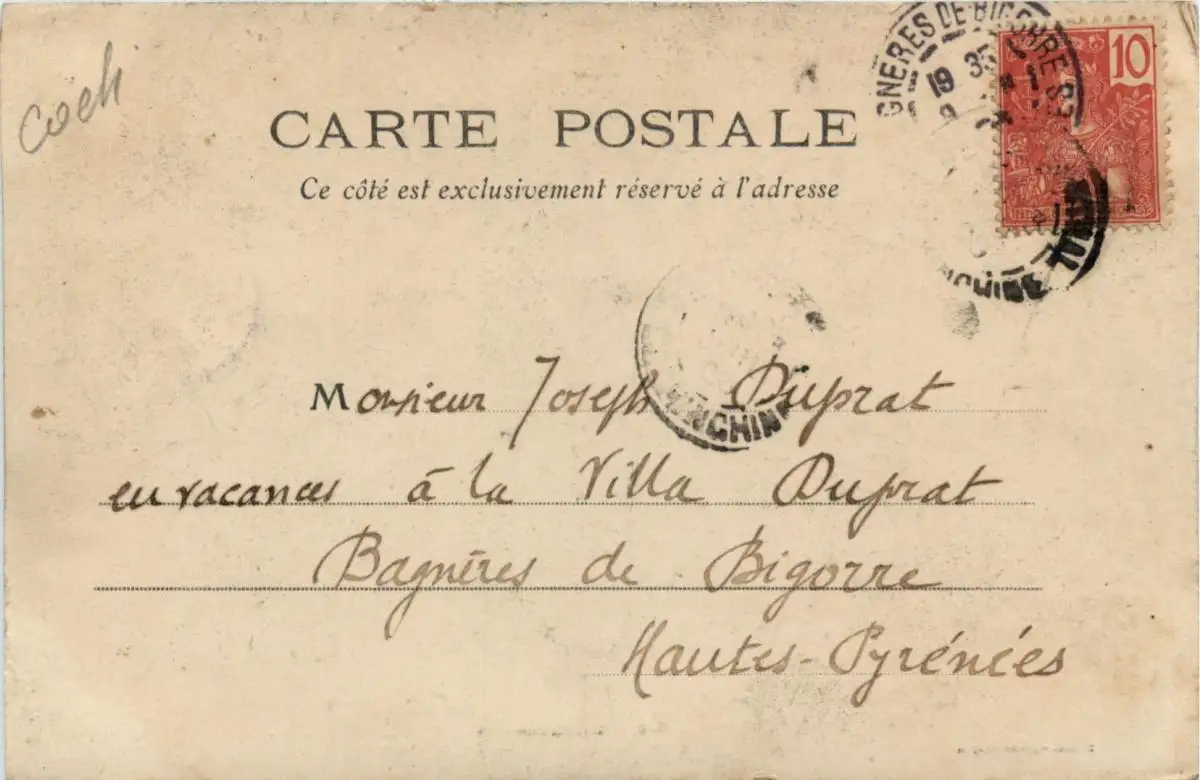 Coch
CARTE POSTALE
Ce côté est exclusivement réservé à l'adresse
GNÈRES DE BIGORRE
19 35
10
CHINE
Monsieur Joseph Duprat
en vacances à la Villa Duprat
Bagnères de Bigorre
Hautes-Pyrénées